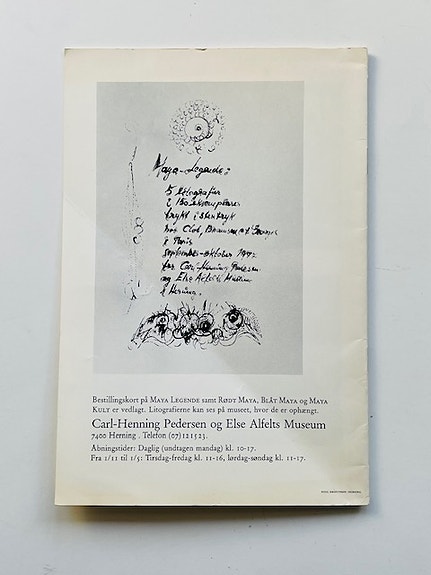 Maya-Legende:
5 litografier
i 150 eksemplarer
trykt i stentryk
hos Clot, Bramsen et Georges
i Paris
september-oktober 1972
for Carl-Henning Pedersen
og Else Alfelts Museum
i Herning.
Bestillingskort på MAYA LEGENDE samt RØDT MAYA, BLÅT MAYA og MAYA
KULT er vedlagt. Litografierne kan ses på museet, hvor de er ophængt.
Carl-Henning Pedersen og Else Alfelts Museum
7400 Herning . Telefon (07)121523.
Åbningstider: Daglig (undtagen mandag) kl. 10-17.
Fra 1/11 til 1/5: Tirsdag-fredag kl. 11-16, lørdag-søndag kl. 11-17.